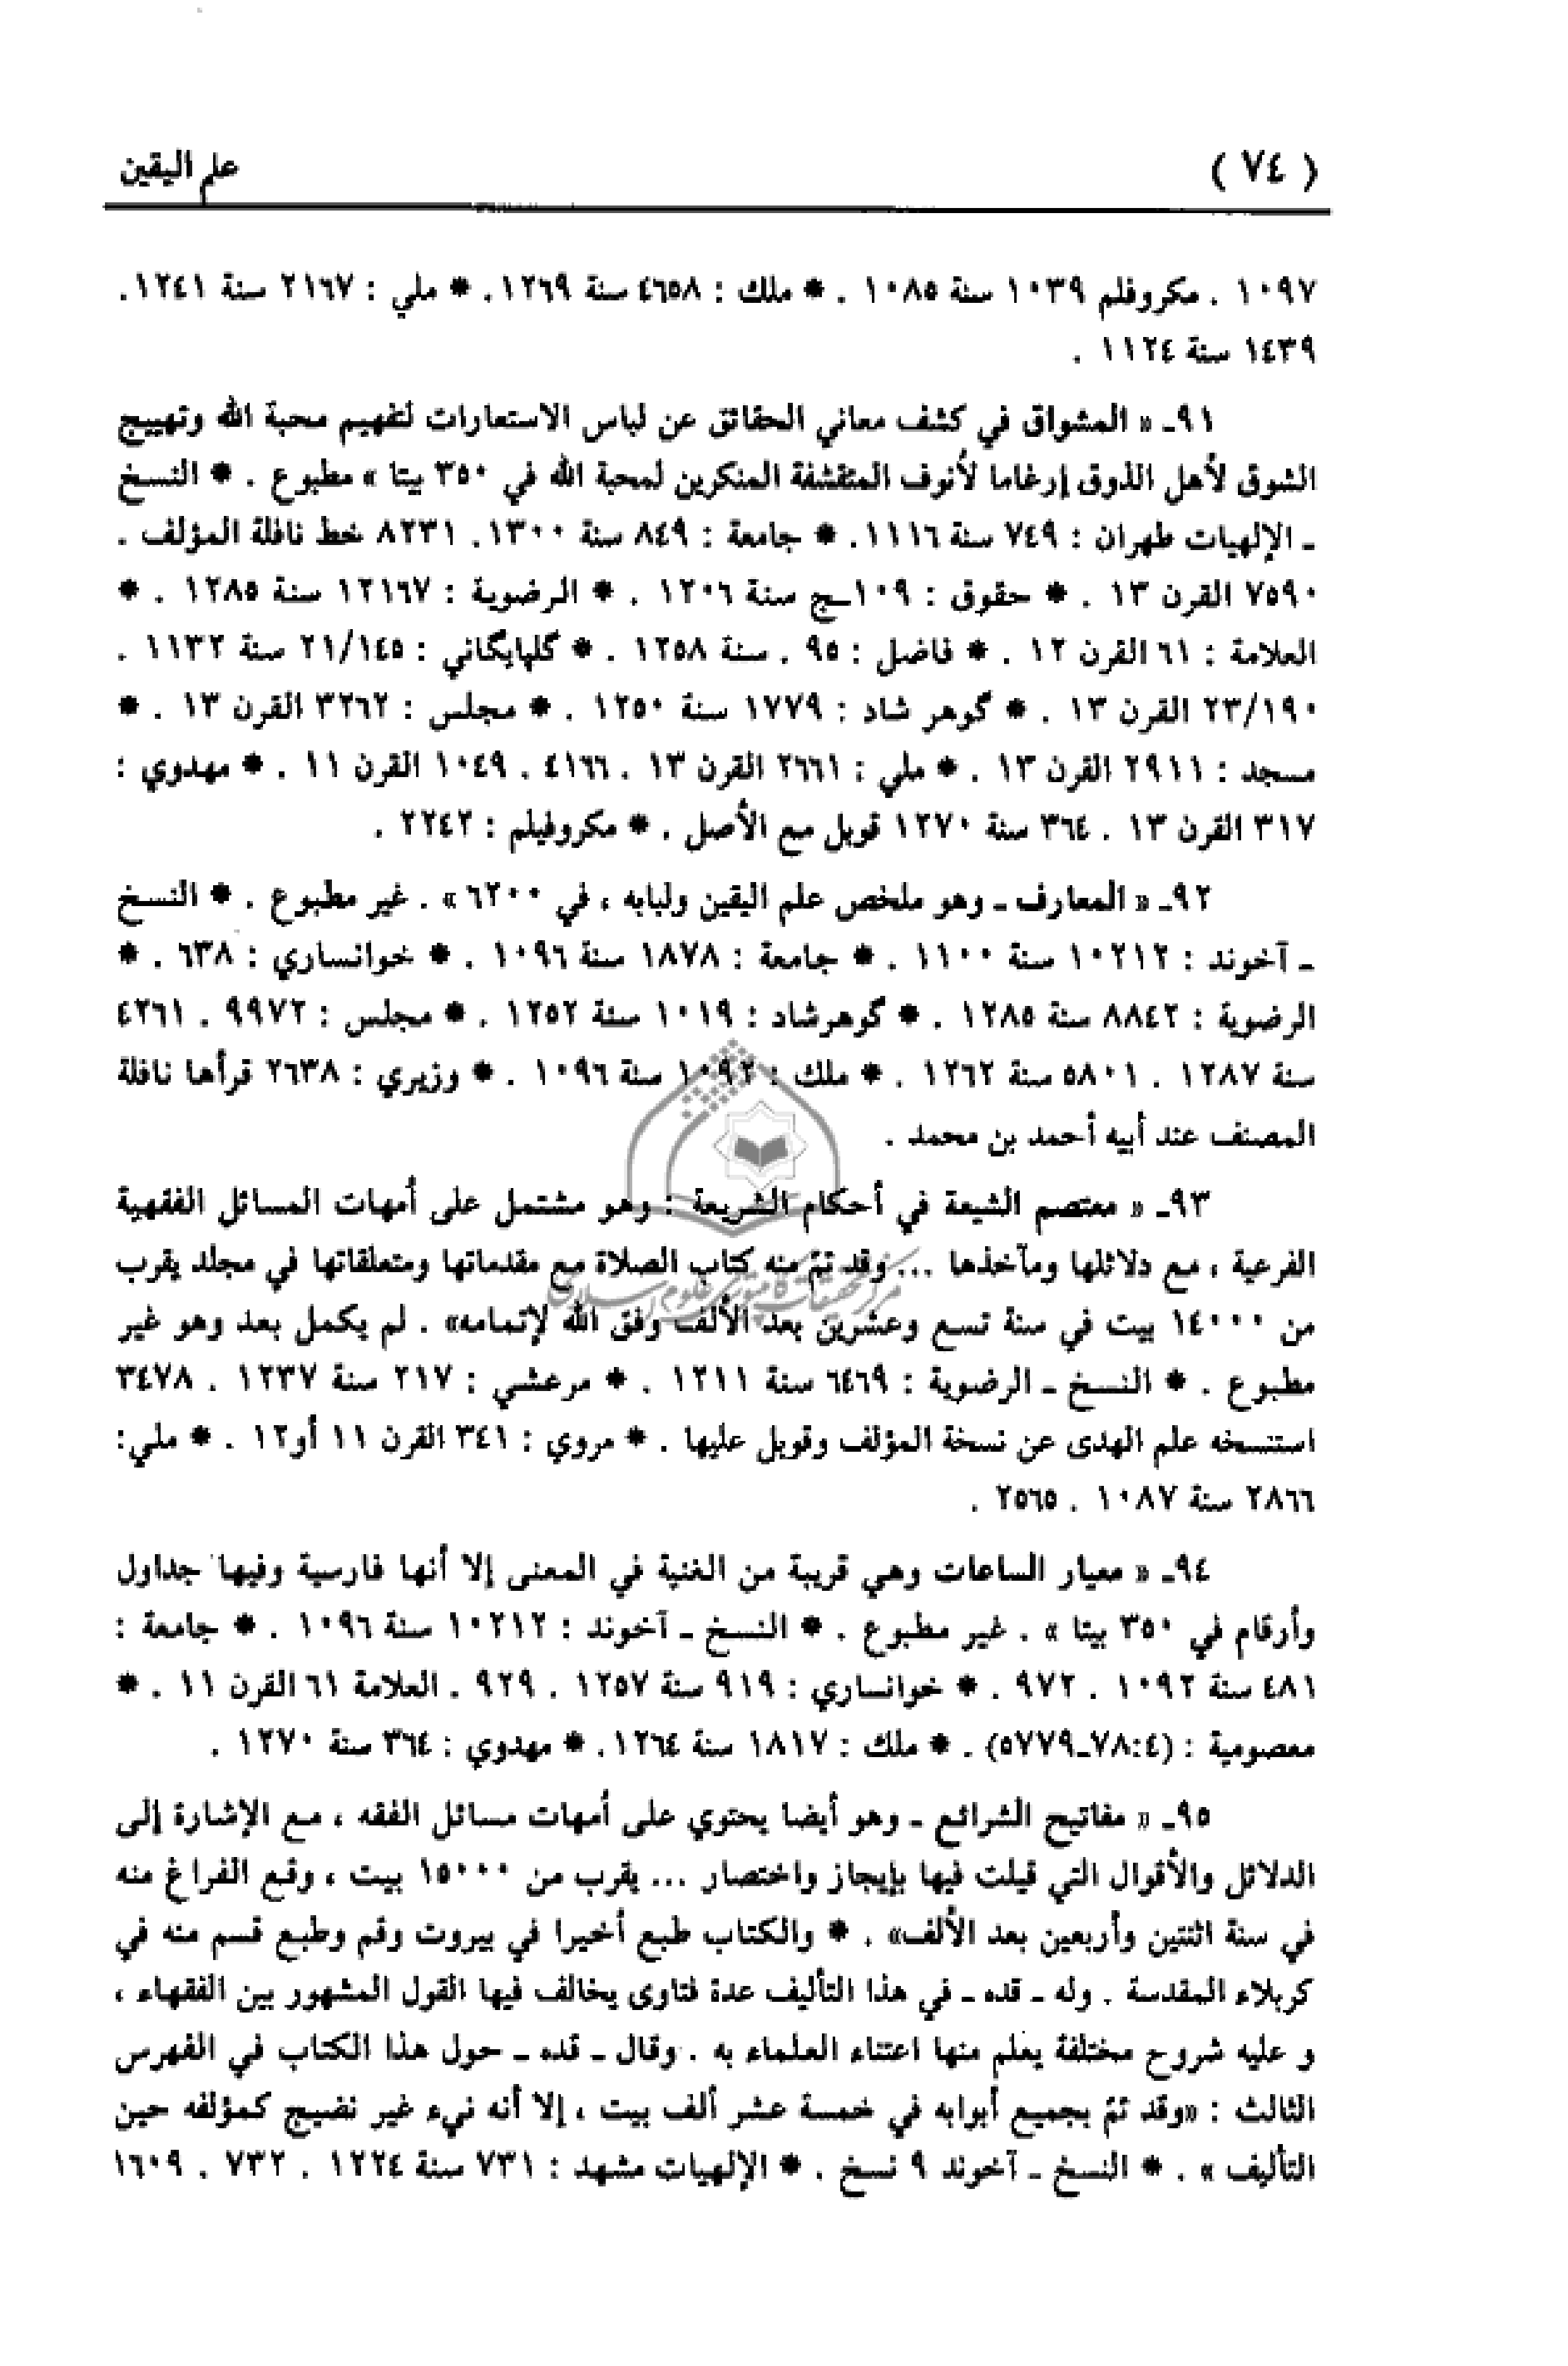 ( ٧٤ ) علم اليقين
١٠٩٧ . مكروفلم ١٠٣٩ سنة ١٠٨٥ . * ملك : ٤٦٥٨ سنة ١٢٦٩. * ملي : ٢١٦٧ سنة ١٢٤١.
١٤٣٩ سنة ١١٢٤ .
٩١ـ « المشواق في كشف معاني الحقائق عن لباس الاستعارات لتفهيم محبة الله وتهييج
الشوق لأهل الذوق إرغاما لأنوف المتقشفة المنكرين لمحبة الله في ٣٥٠ بيتا » مطبوع . * النسخ
ـ الإلهيات طهران : ٧٤٩ سنة ١١١٦. * جامعة : ٨٤٩ سنة ١٣٠٠. ٨٢٣١ خط نافلة المؤلف .
٧٥٩٠ القرن ١٣ . * حقوق : ١٠٩ـج سنة ١٢٠٦ . * الرضوية : ١٢١٦٧ سنة ١٢٨٥ . *
العلامة : ٦١ القرن ١٢ . * فاضل : ٩٥ . سنة ١٢٥٨ . * گلپايگاني : ٢١/١٤٥ سنة ١١٣٢ .
٢٣/١٩٠ القرن ١٣ . * گوهر شاد : ١٧٧٩ سنة ١٢٥٠ . * مجلس : ٣٢٦٢ القرن ١٣ . *
مسجد : ٢٩١١ القرن ١٣ . * ملي : ٢٦٦١ القرن ١٣ . ٤١٦٦ . ١٠٤٩ القرن ١١ . * مهدوي :
٣١٧ القرن ١٣ . ٣٦٤ سنة ١٢٧٠ قوبل مع الأصل . * مكروفيلم : ٢٢٤٢ .
٩٢ـ « المعارف ـ وهو ملخص علم اليقين ولبابه ، في ٦٢٠٠ » . غير مطبوع . * النسخ
ـ آخوند : ١٠٢١٢ سنة ١١٠٠ . * جامعة : ١٨٧٨ سنة ١٠٩٦ . * خوانساري : ٦٣٨ . *
الرضوية : ٨٨٤٢ سنة ١٢٨٥ . * گوهرشاد : ١٠١٩ سنة ١٢٥٢ . * مجلس : ٩٩٧٢ . ٤٢٦١
سنة ١٢٨٧ . ٥٨٠١ سنة ١٢٦٢ . * ملك : ١٠٩٢ سنة ١٠٩٦ . * وزيري : ٢٦٣٨ قرأها نافلة
المصنف عند أبيه أحمد بن محمد .
٩٣ـ « معتصم الشيعة في أحكام الشريعة : وهو مشتمل على أمهات المسائل الفقهية
الفرعية ، مع دلائلها ومآخذها ... وقد تمّ منه كتاب الصلاة مع مقدماتها ومتعلقاتها في مجلد يقرب
من ١٤٠٠٠ بيت في سنة تسع وعشرين بعد الألف وفق الله لإتمامه» . لم يكمل بعد وهو غير
مطبوع . * النسخ ـ الرضوية : ٦٤٦٩ سنة ١٢١١ . * مرعشي : ٢١٧ سنة ١٢٣٧ . ٣٤٧٨
استنسخه علم الهدى عن نسخة المؤلف وقوبل عليها . * مروي : ٣٤١ القرن ١١ أو١٢ . * ملي:
٢٨٦٦ سنة ١٠٨٧ . ٢٥٦٥ .
٩٤ـ « معيار الساعات وهي قريبة من الغنية في المعنى إلا أنها فارسية وفيها جداول
وأرقام في ٣٥٠ بيتا » . غير مطبوع . * النسخ ـ آخوند : ١٠٢١٢ سنة ١٠٩٦ . * جامعة :
٤٨١ سنة ١٠٩٢ . ٩٧٢ . * خوانساري : ٩١٩ سنة ١٢٥٧ . ٩٢٩ . العلامة ٦١ القرن ١١ . *
معصومية : (٧٨:٤ـ٥٧٧٩) . * ملك : ١٨١٧ سنة ١٢٦٤. * مهدوي : ٣٦٤ سنة ١٢٧٠ .
٩٥ـ « مفاتيح الشرائع ـ وهو أيضا يحتوي على أمهات مسائل الفقه ، مع الإشارة إلى
الدلائل والأقوال التي قيلت فيها بإيجاز واختصار ... يقرب من ١٥٠٠٠ بيت ، وقع الفراغ منه
في سنة اثنتين وأربعين بعد الألف» . * والكتاب طبع أخيرا في بيروت وقم وطبع قسم منه في
كربلاء المقدسة . وله ـ قده ـ في هذا التأليف عدة فتاوى يخالف فيها القول المشهور بين الفقهاء ،
و عليه شروح مختلفة يعلم منها اعتناء العلماء به . وقال ـ قده ـ حول هذا الكتاب في الفهرس
الثالث : «وقد تمّ بجميع أبوابه في خمسة عشر ألف بيت ، إلا أنه نيء غير نضيج كمؤلفه حين
التأليف » . * النسخ ـ آخوند ٩ نسخ . * الإلهيات مشهد : ٧٣١ سنة ١٢٢٤ . ٧٣٢ . ١٦٠٩
مركز تحقيقات كامپيوتری علوم اسلامی